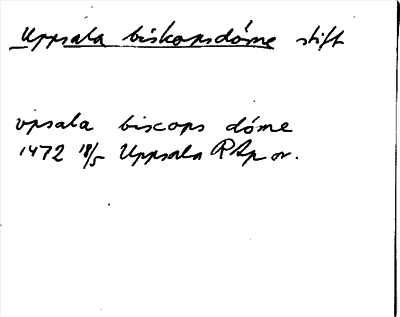 Uppsala biskopsdöme stift
vpsala biscops döme
1472 18/5 Uppsala RAp or.